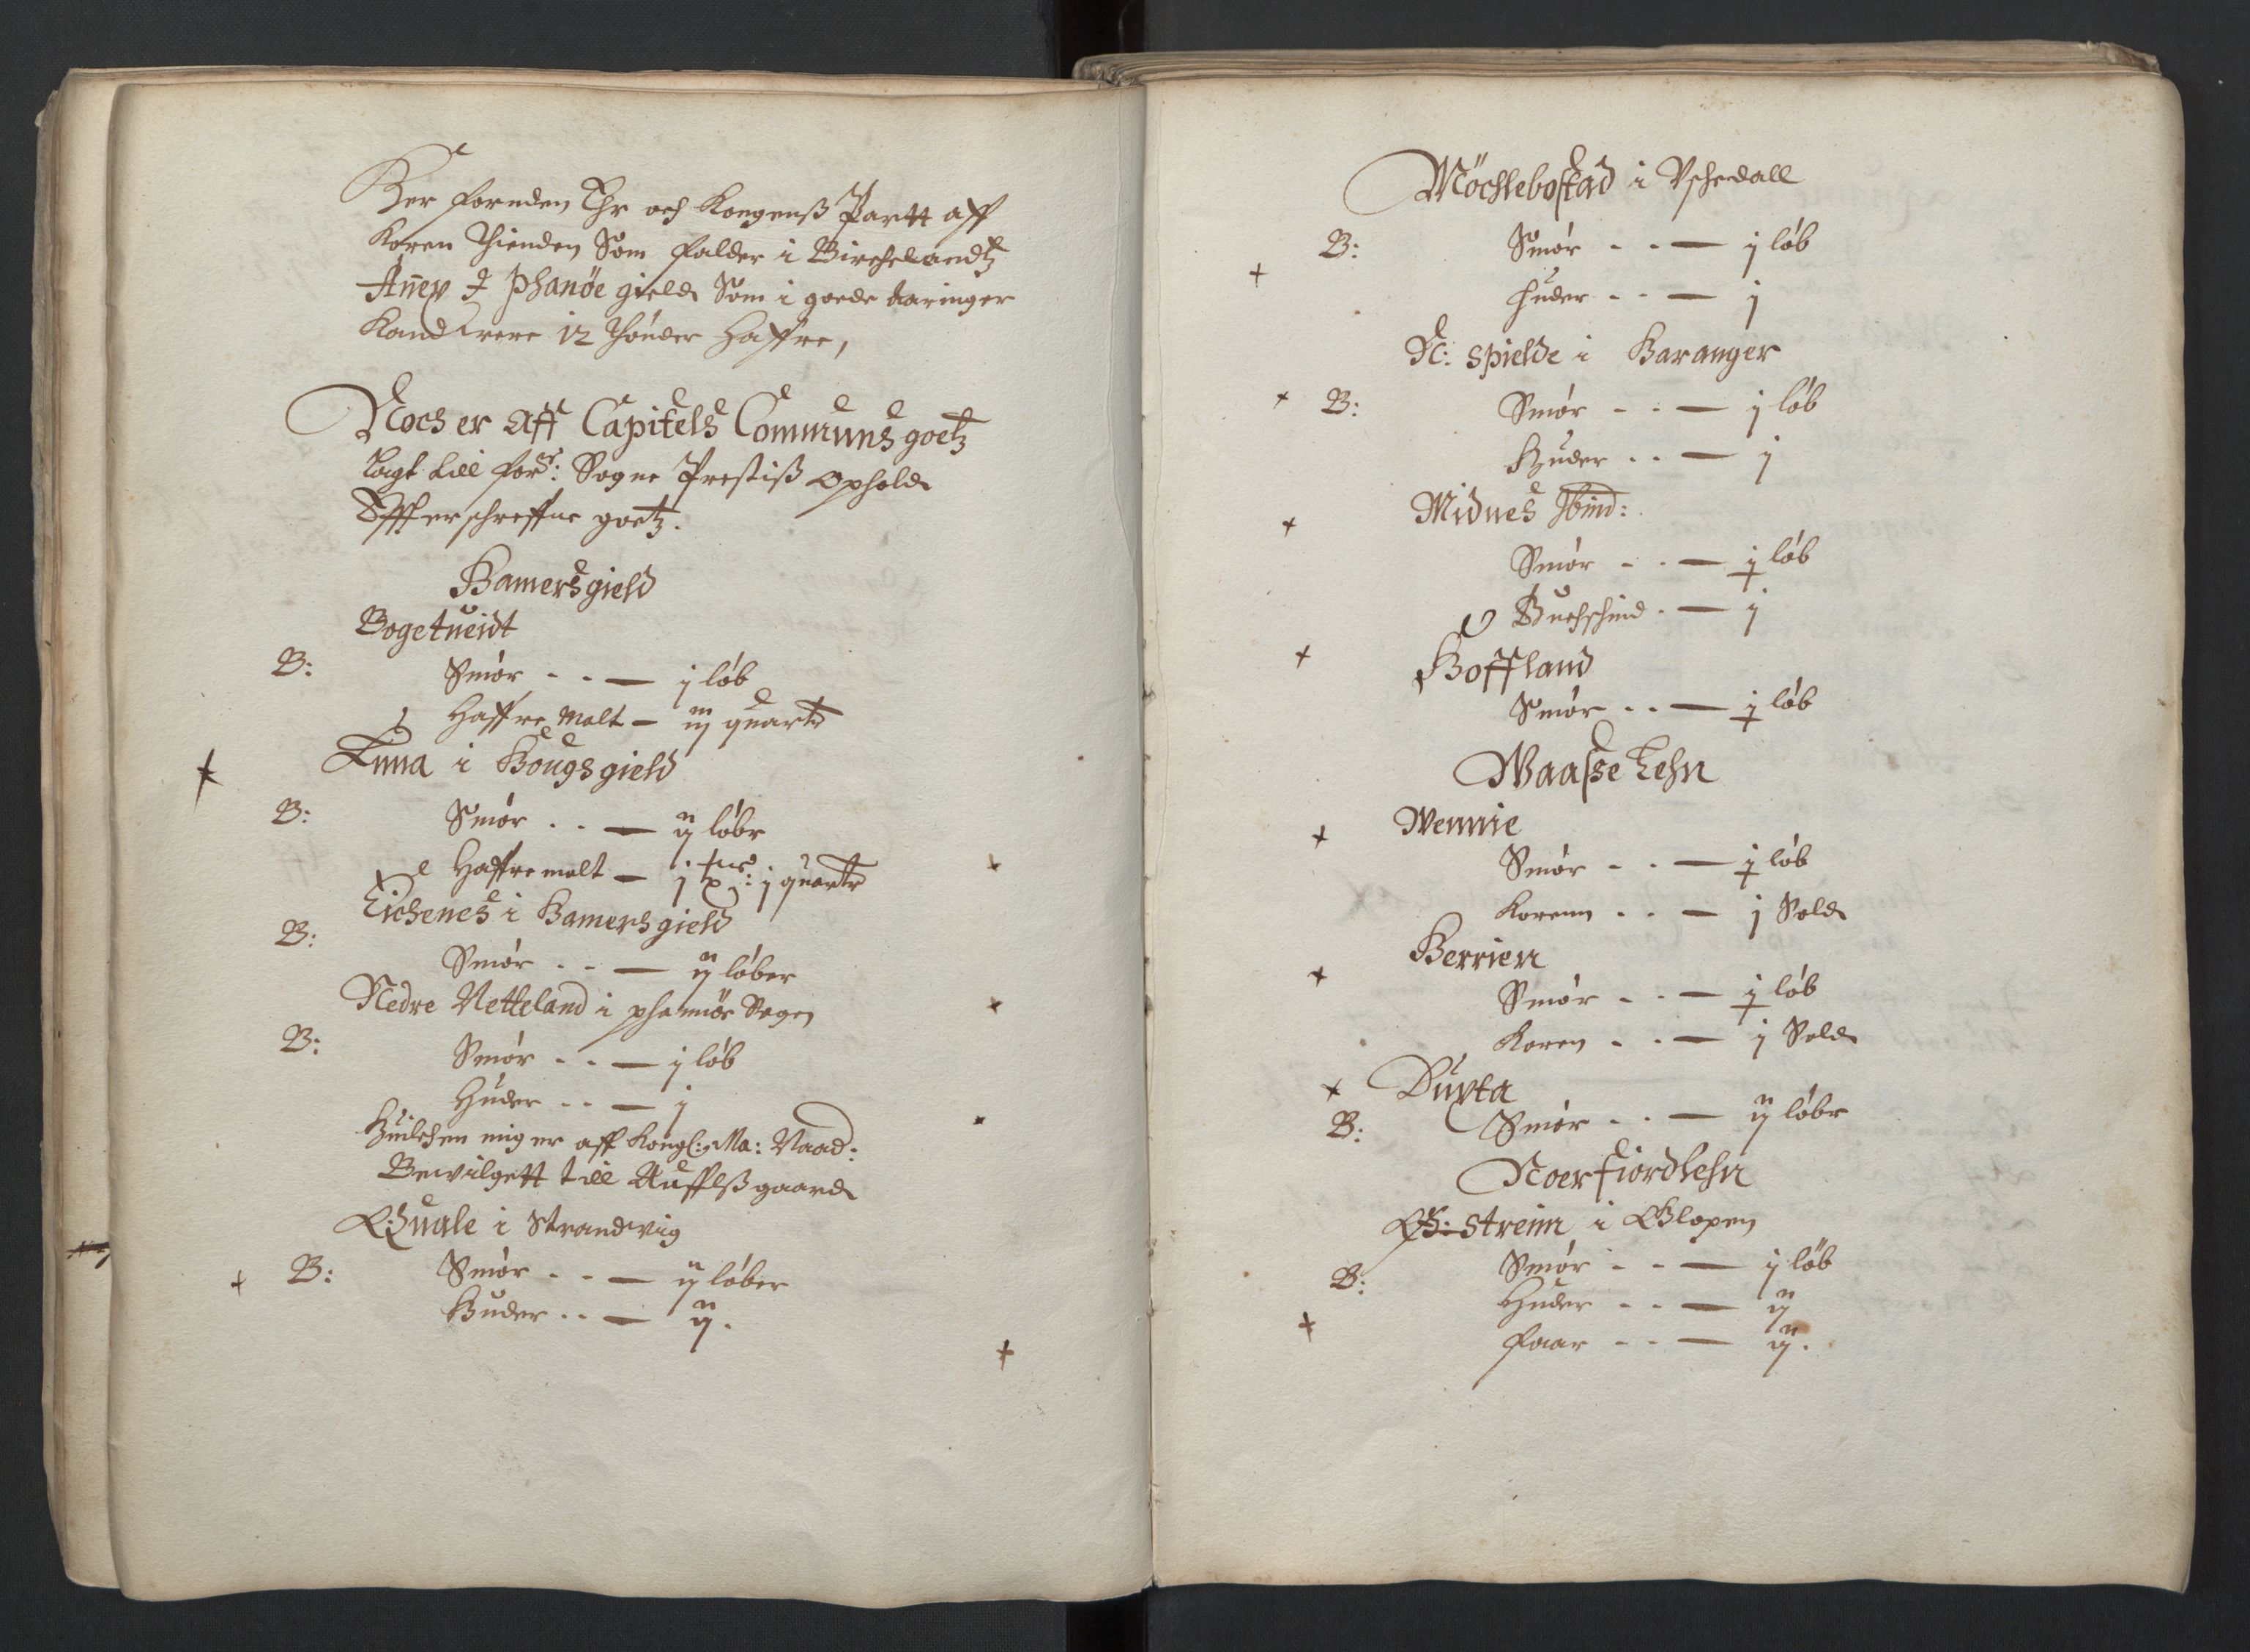 Her forunden Ehr och Kongenß Partt aff
Koren Thienden Som falder i Birchelandtz
Añex I Phanöe gield Som i goede Aaringer
Kand were 12 Thönder Haffre,
Noch er Aff Capitels Communs goetz
Lagt till forſ: Sogne Prestiß Ophold
Efferschreffne goetz.
Hamersgield
Bogetueidt
B: Smör - - — j löb
Haffre Malt — iij quarter
Tuna i Hougsgield
B: Smör - - — ij löbr
Haffre malt — j j quarter
Eichenes i Hamersgield
B: Smör - - — ij löber
Nedre Netteland i phannöe Sogen
B: Smör - - — j löb
Huder - - — j
Huilchen mig er aff Kongl: Ma: Naad:
Bewilgett till Aufflß gaard
Quale i Strandvig
B: Smör - - — ij löber
Huder - - — ij.
Möchlebostad i Vschedall
B: Smör - - — j löb
Huder - - — j
N: Spielde i Haranger
B: Smör - - — j löb
Huder - - — j
Midnes Ibid:
Smör - - — j löb
Buchschind - — j
Hoffland
Smör - - — j löb
Waasse Lehn
Wennie
Smör - - — j löb
Korenn - - — j Sold
Berrien
Smör - - — j löb
Koren - - — j Sold
Duvta
B: Smör - - — ij löbr
Noerfiordlehn
Streim i Glopen
B: Smör - - — j löb
Huder - - — ij
Faar - - — ij.